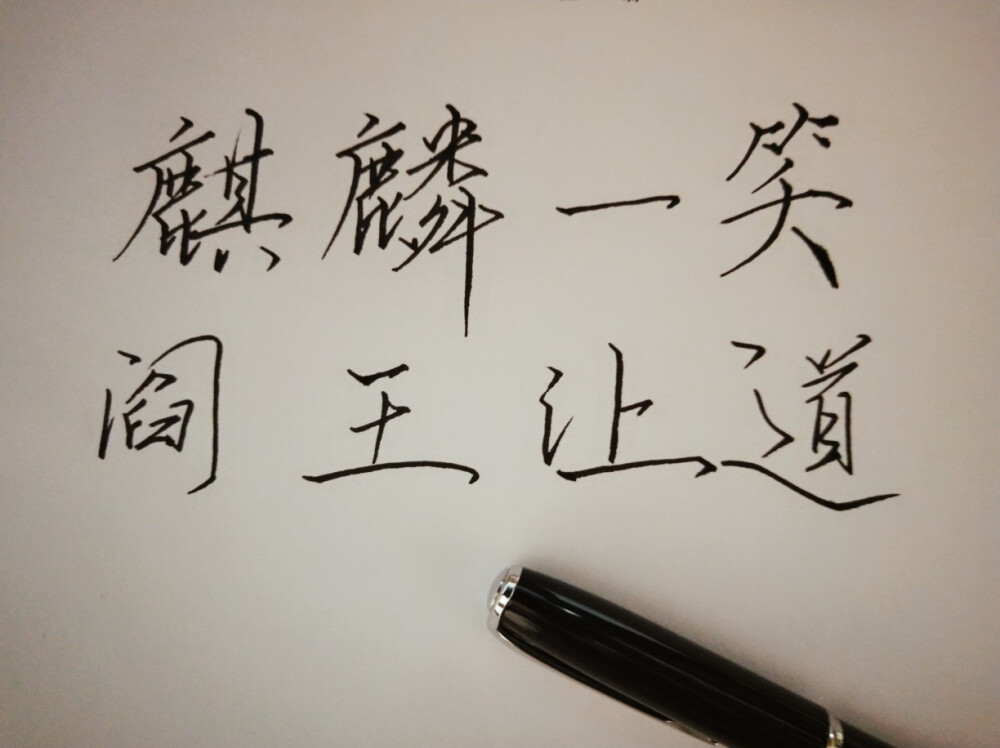 麒麟一笑
阎王让道